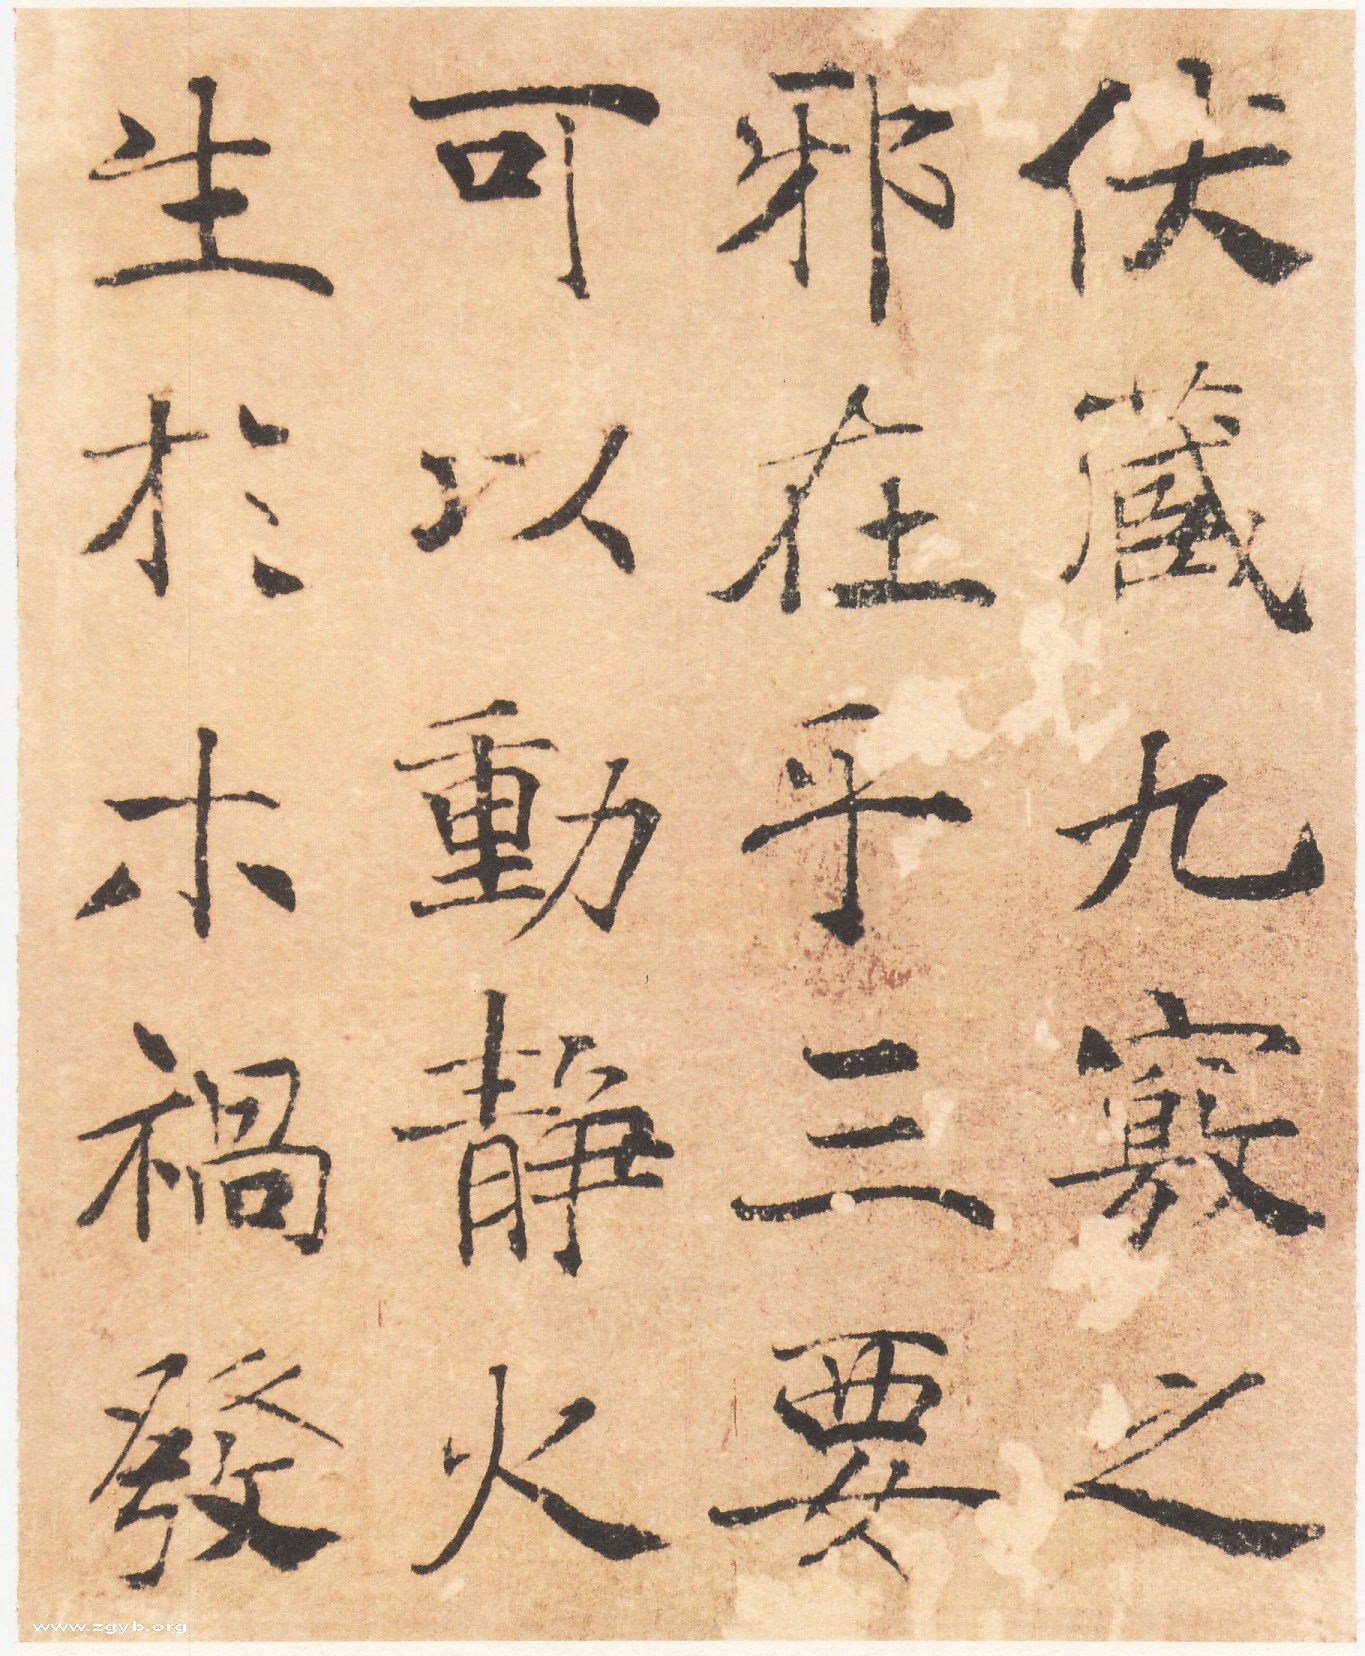 伏藏九竅之
邪在乎三要
可以動靜火
生於木禍發
www.zgyb.org